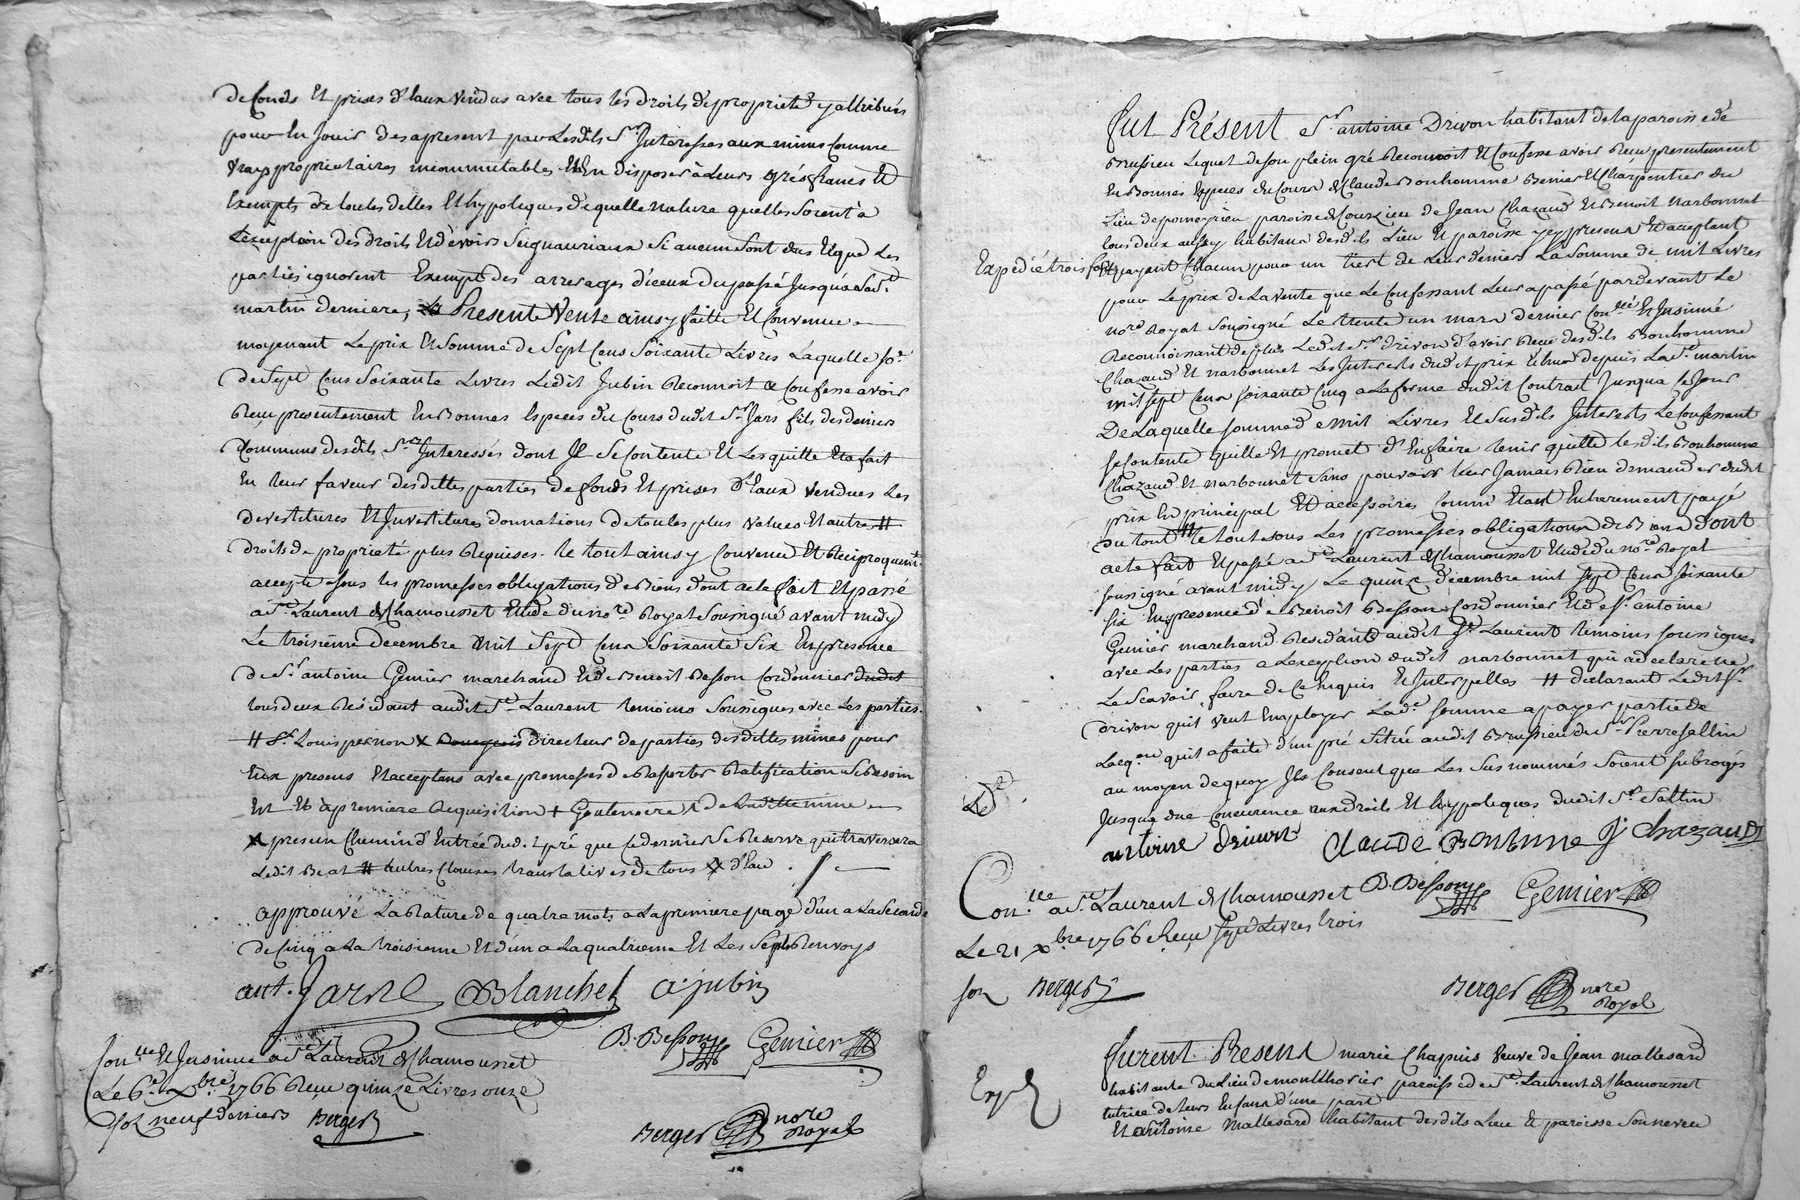 de fonds Et prises d'Eaux vendus avec tous les droits de propriete y attribués
pour En Jouir des apresent par Lesdits Srs Interesses aux mines Comme
vrays proprietaires incommutables Et En disposer à Leurs grés francs Et
Exempts de toutes dettes Et hypoteques de quelle nature quelles Soient à
L'exception des droits Et devoirs Seigneuriaux Si aucun Sont dus Et que Les
parties ignorent Exempt des arrerages d'iceux du passé Jusqu'à la St
martin derniere, La Presente Vente ainsy faitte Et Convenue
moyenant Le prix Et Somme de Sept Cens Soixante Livres Laquelle
de Sept Cens Soixante Livres Ledit Jubin Reconnoit & Confesse avoir
Reçu presentement En Bonnes Especes du Cours dudit Sr Jars fils des deniers
Communs desdits Srs Interessés dont Il Se Contente Et Les quitte Et a fait
En leur faveur desdittes parties de fonds Et prises d'Eaux vendues Les
devestitures Et Investitures donnations de toutes plus values Et autres #
droits de propriete plus Requises. le tout ainsy Convenu Et Reciproquemt
accepté sous les promesses obligations de Biens dont acte fait Et passé
a St Laurent de Chamousset Etude du nore Royal Soussigné avant midy
Le troisieme decembre mil Sept Cens Soixante Six En presence
de Sr antoine Genier marchand Et de Benoit Besson Cordonnier dudit
tous deux Résidant audit St Laurent temoins Soussignes avec Les parties.
# Sr Louis pernon x Bourgeois directeur de parties desdittes mines pour
Eux presens Et acceptans avec promesses de Raporter Ratification Si Besoin
Est Et à premiere Requisition + Goutenoire x de Laditte mine
x pres un Chemin d'Entrée dudit pré que Ce dernier Se Reserve qui traversera
Ledit Beat # autres Clauses translatives de tous x d'Eau
approuvé La Rature de quatre mots a La premiere page d'un a La Seconde
de Cinq a La troisieme Et d'un a La quatrieme Et Les Sept Renvoys
ant. Jars Blanchet A. jubin
B. Besson Genier
Conlle Et Insinué a St Laurent de Chamousset
Le 6e xbre 1766 Reçu quinze Livres onze
sols neuf deniers Berger
Berger nore Royal
Fut Présent Sr antoine Drivon habitant de la paroisse de
Brussieu Lequel de Son plein gré Reconnoit Et Confesse avoir Reçu presentement
En Bonnes Especes du Cours de Claude Bonhomme Benier Et Charpentier du
Lieu de paroisse de Courzieu de Jean Chazaud Et Benoit Narbonnet
tous deux aussy habitans desdits Lieu Et paroisse ycy presens Et acceptant
Expedié trois fois
Et payant Chacun pour un tiers de Leurs deniers La Somme de mil Livres
pour Le prix de La vente que Le Confessant Leur a passé pardevant Le
nore Royal Soussigné Le trente un mars dernier Conllé Et Insinué
Reconnoissant de plus Ledit Sr drivon d'avoir Reçu desdits Bonhomme
Chazaud Et narbonnet Les Interests dudit prix Echus depuis La St martin
mil Sept Cens Soixante Cinq a La forme dudit Contrat Jusqua Ce Jour
De Laquelle Somme de mil Livres Et Susdits Interests Le Confessant
Se Contente quitte Et promet d'En faire tenir quitte lesdits Bonhomme
Chazaud Et narbonnet Sans pouvoir leur Jamais Rien demander dudit
prix En principal Et accessoires Comme Etant Entierement payé
du tout # le tout sous Les promesses obligations de Biens dont
acte fait Et passé a St Laurent de Chamousset Etude du nore Royal
Soussigné avant midy Le quinze decembre mil Sept Cens Soixante
Six En presence de Benoit Besson Cordonnier Et de Sr antoine
Genier marchand Residants audit St Laurent temoins Soussignes
avec Les parties a L'exception dudit narbonnet qui a declaré ne
Le Scavoir faire de Ce Enquis Et Interpellés # declarant Ledit Sr
drivon quil veut Employer La de somme a payer partie de
Lacqon quil a faite d'un pré Situé audit Brussieu du Sr Pierre Saltin
au moyen de quoy Il Consent que Les Susnommés Soient Subrogés
Jusqua due Concurence aux droits Et hypoteques dudit Sr Saltin
antoine drivont Claude Bonhme J. Chazaud
B. Besson Genier
Conlle a St Laurent de Chamousset
Le 21 xbre 1766 Reçu Sept Livres trois
sols Berger
Berger nore Royal
Exp
Furent Presens marie Chapuis veuve de Jean mallesard
habitante du Lieu de montthorier paroisse de St Laurent de Chamousset
tutrice de leurs Enfans d'une part
Et antoine mallesard habitant desdits Lieu Et paroisse Son neveu